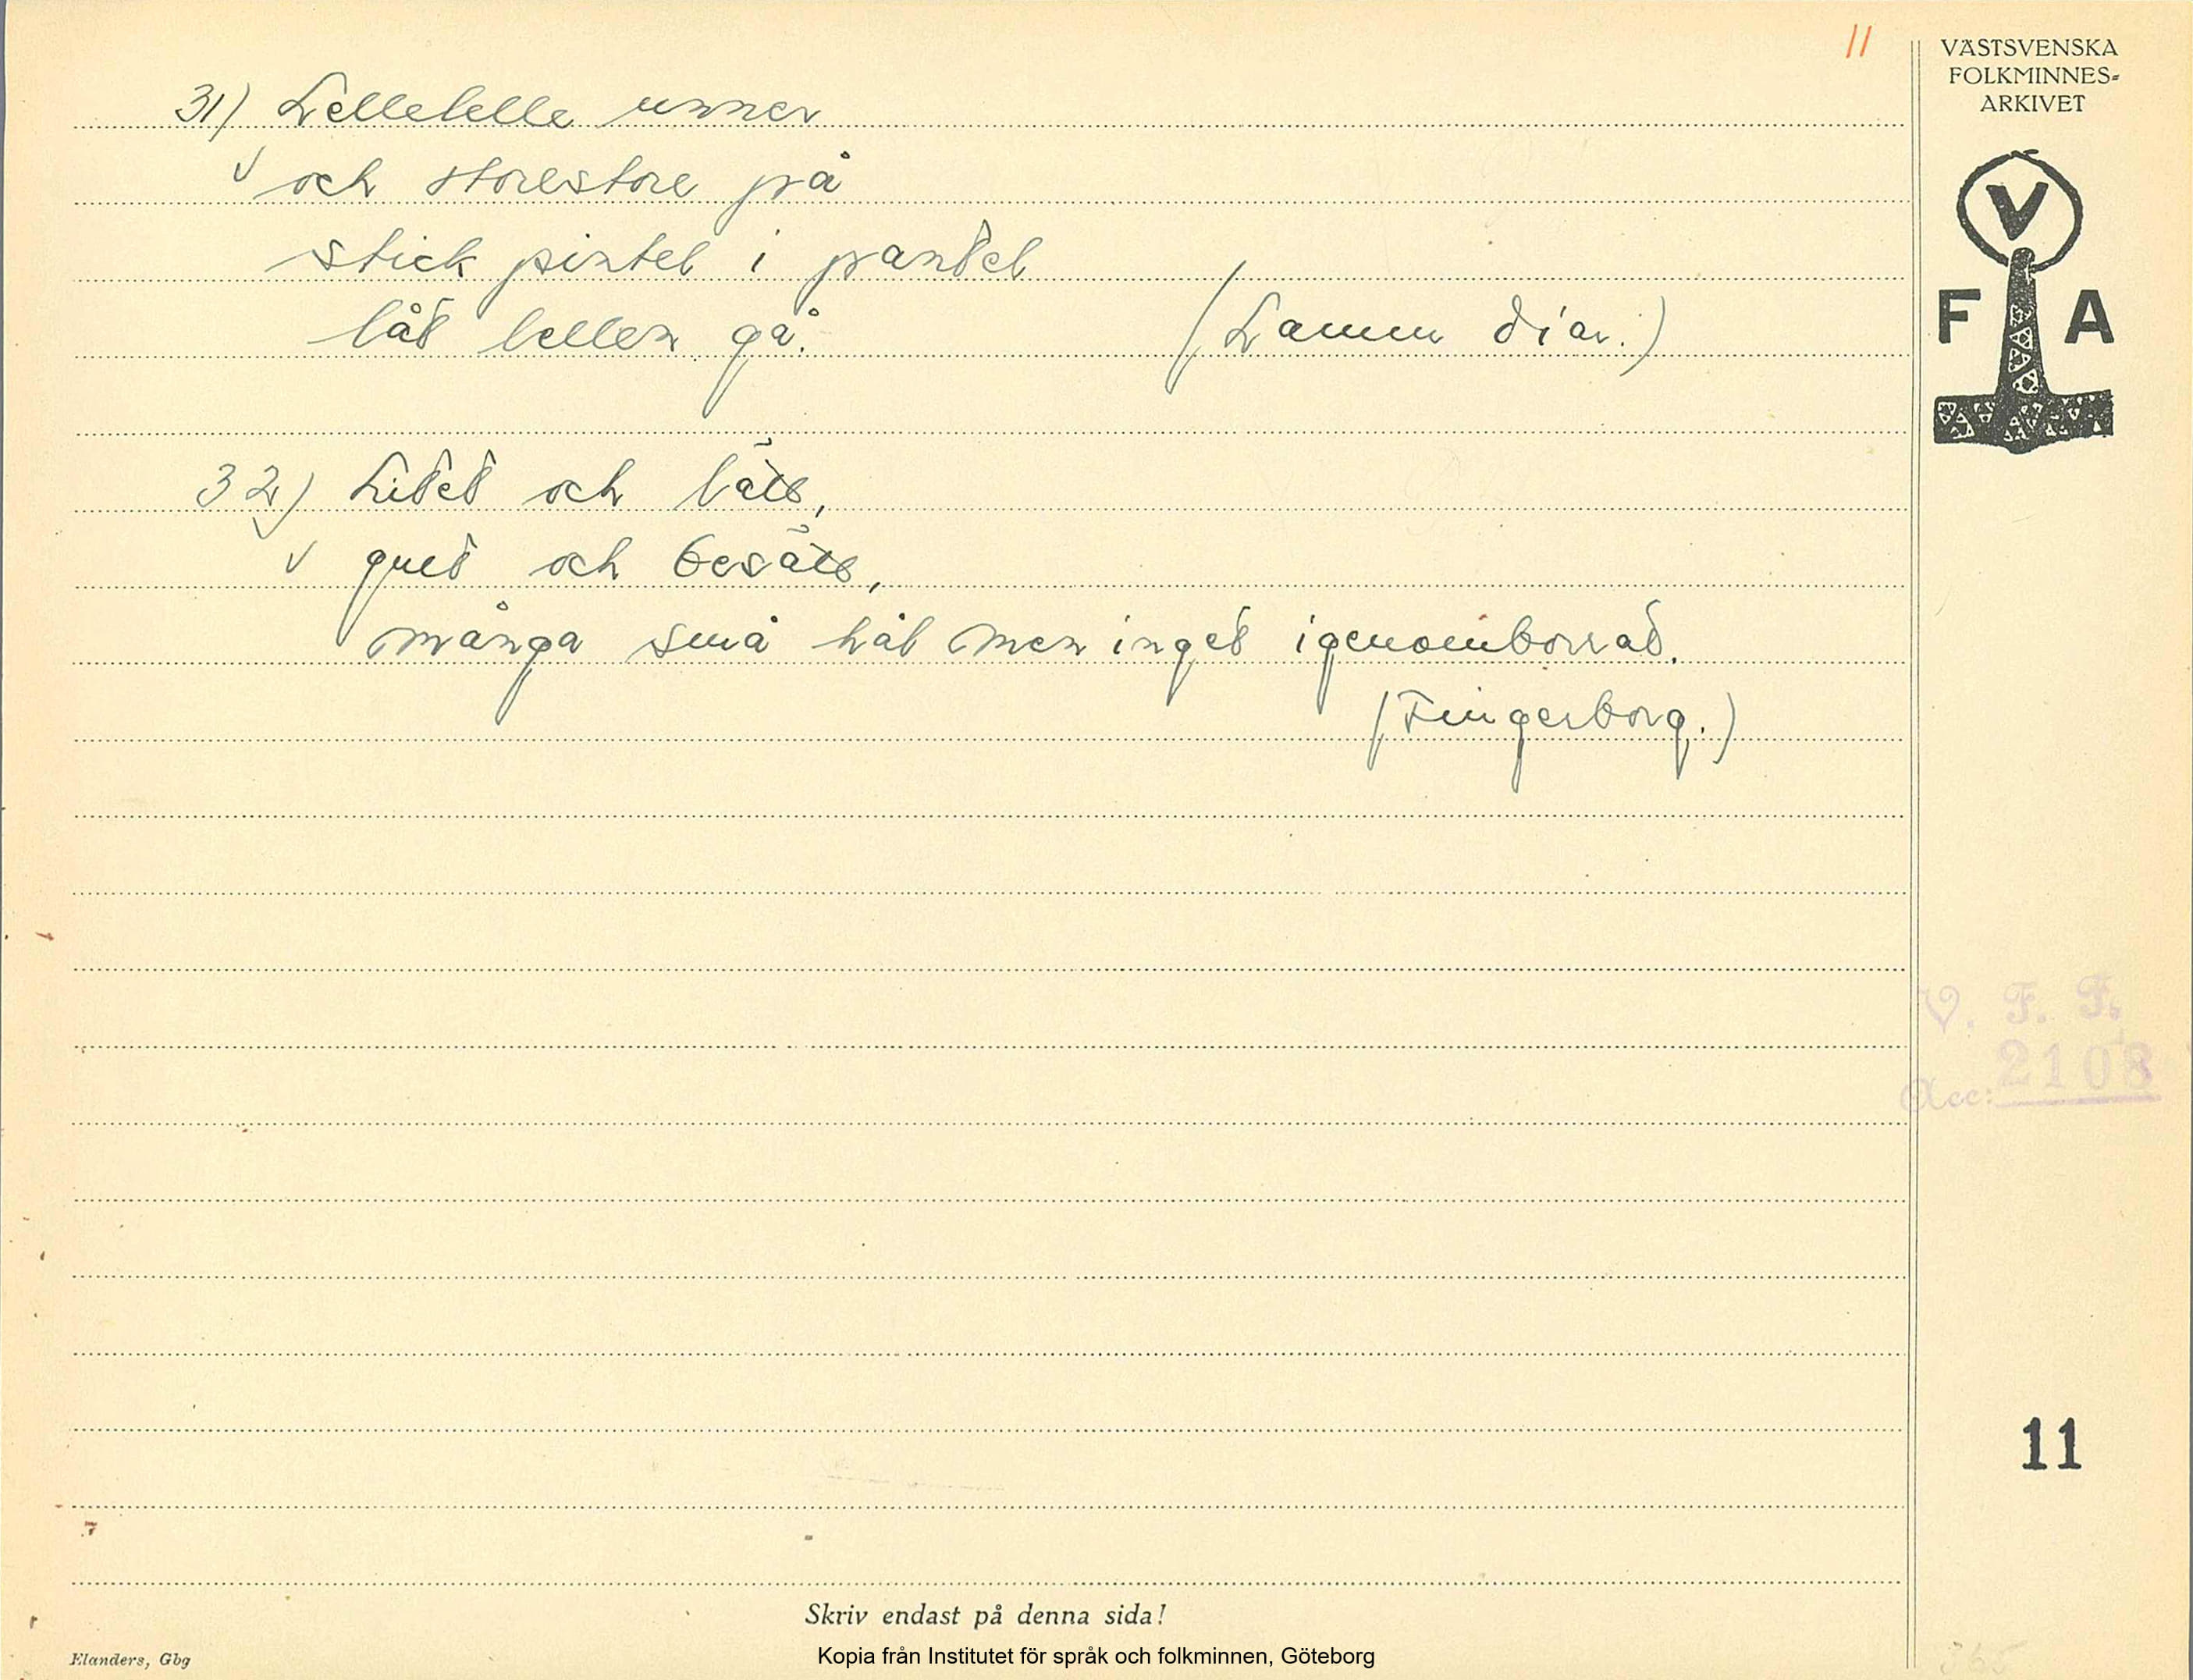 11
VÄSTSVENSKA
FOLKMINNES-
ARKIVET
V
F A
31) Lellelelle unner
√ och storestore på
stick pintel i pantel
låt lellen gå.
(Lamm diar.)
32) Litet och lätt,
√ gult och besätt,
många små hål men inget igenomborrat.
(Fingerborg.)
V. F. F.
Acc: 2108
11
Skriv endast på denna sida!
Elanders, Gbg
Kopia från Institutet för språk och folkminnen, Göteborg
365